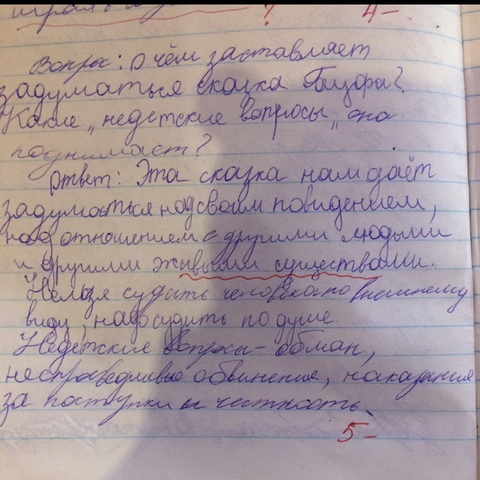 играль
? 4-
Вопрос: о чём заставляет
задуматься сказка Гауфа?
Какие "недетские вопросы" она
поднимает?
Ответ: Эта сказка нам даёт
задуматься над своим повидением,
над отношением с другими людьми
и другими живыми существами.
Нельзя судить человека по внешнему
виду, надо судить по душе.
Недетские вопросы - обман,
несправедливые обвинение, наказания
за поступки и честность.
5-